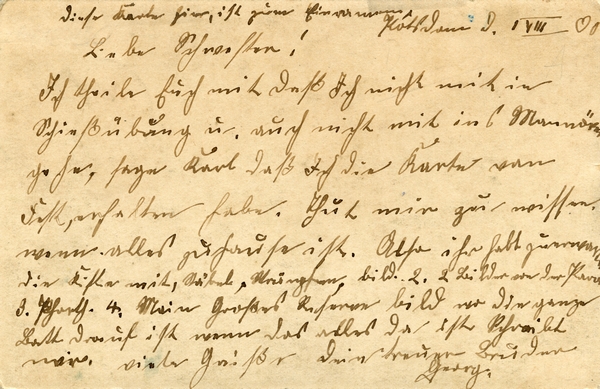 diese Karte hier, ist zum Einramen
Potsdam d. 1 VIII 00
Liebe Schwester!
Ich theile Euch mit daß Ich nicht mit in
Schießübung u. auch nicht mit ins Mannöver
gehe, sage Karl daß Ich die Karte von
erhalten habe. Thut mir zu wissen.
wenn alles zuhause ist. Also ihr habt zuerwarten
die Kiste mit, Säbel, bild. 2. 2 Bilder von der Parade
3. 4. Mein Großes Reserve bild wo die ganze
Batt drauf ist wenn das alles da ist Schreibt
mir. viele Grüße dein treuer Bruder
Georg.